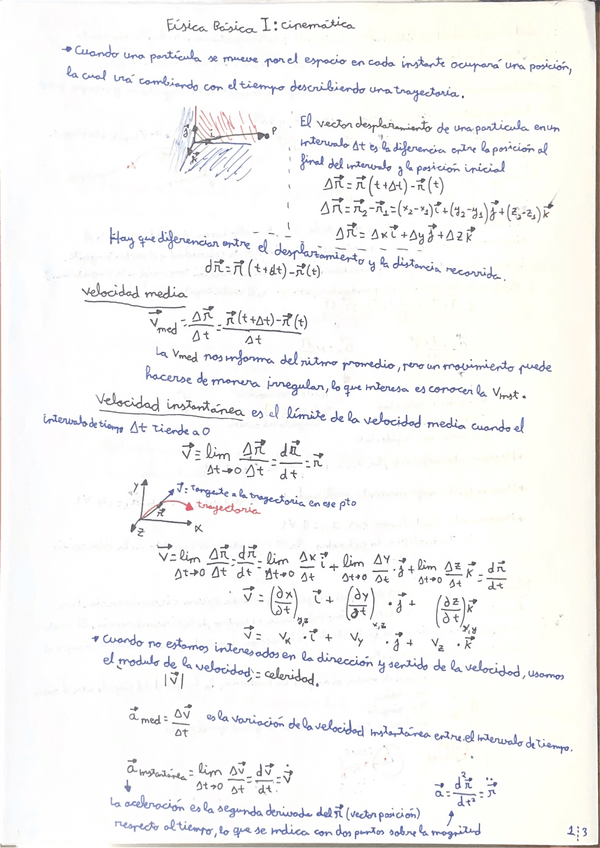 Física Básica I: cinemática
• Cuando una partícula se mueve por el espacio en cada instante ocupará una posición,
la cual irá cambiando con el tiempo describiendo una trayectoria.
j i P
k
El vector desplazamiento de una partícula en un
intervalo Δt es la diferencia entre la posición al
final del intervalo y la posición inicial
Δr⃗ = r⃗(t+Δt) - r⃗(t)
Δr⃗ = r⃗₂ - r⃗₁ = (x₂-x₁)i⃗ + (y₂-y₁)j⃗ + (z₂-z₁)k⃗
Δr⃗ = Δx i⃗ + Δy j⃗ + Δz k⃗
Hay que diferenciar entre el desplazamiento y la distancia recorrida.
dr⃗ = r⃗(t+dt) - r⃗(t)
velocidad media
v⃗med = Δr⃗/Δt = (r⃗(t+Δt) - r⃗(t))/Δt
La Vmed nos informa del ritmo promedio, pero un movimiento puede
hacerse de manera irregular, lo que interesa es conocer la Vinst.
Velocidad instantánea es el límite de la velocidad media cuando el
intervalo de tiempo Δt tiende a 0
v⃗ = lim Δt→0 Δr⃗/Δt = dr⃗/dt = ṙ⃗
Y v⃗ = tangente a la trayectoria en ese pto
r⃗ trayectoria
Z X
v⃗ = lim Δt→0 Δr⃗/Δt = dr⃗/dt = lim Δt→0 Δx/Δt i⃗ + lim Δt→0 Δy/Δt · j⃗ + lim Δt→0 Δz/Δt k⃗ = dr⃗/dt
v⃗ = (∂x/∂t)y,z i⃗ + (∂y/∂t)x,z · j⃗ + (∂z/∂t)x,y k⃗
v⃗ = Vx · i⃗ + Vy · j⃗ + Vz · k⃗
• Cuando no estamos interesados en la dirección y sentido de la velocidad, usamos
el modulo de la velocidad = celeridad.
|v⃗|
a⃗med = Δv⃗/Δt es la variación de la velocidad instantánea entre el intervalo de tiempo.
a⃗instantánea = lim Δt→0 Δv⃗/Δt = dv⃗/dt = v̇⃗
a⃗ = d²r⃗/dt² = r̈⃗
La aceleración es la segunda derivada del r⃗ (vector posición)
respecto al tiempo, lo que se indica con dos puntos sobre la magnitud
1⋮3